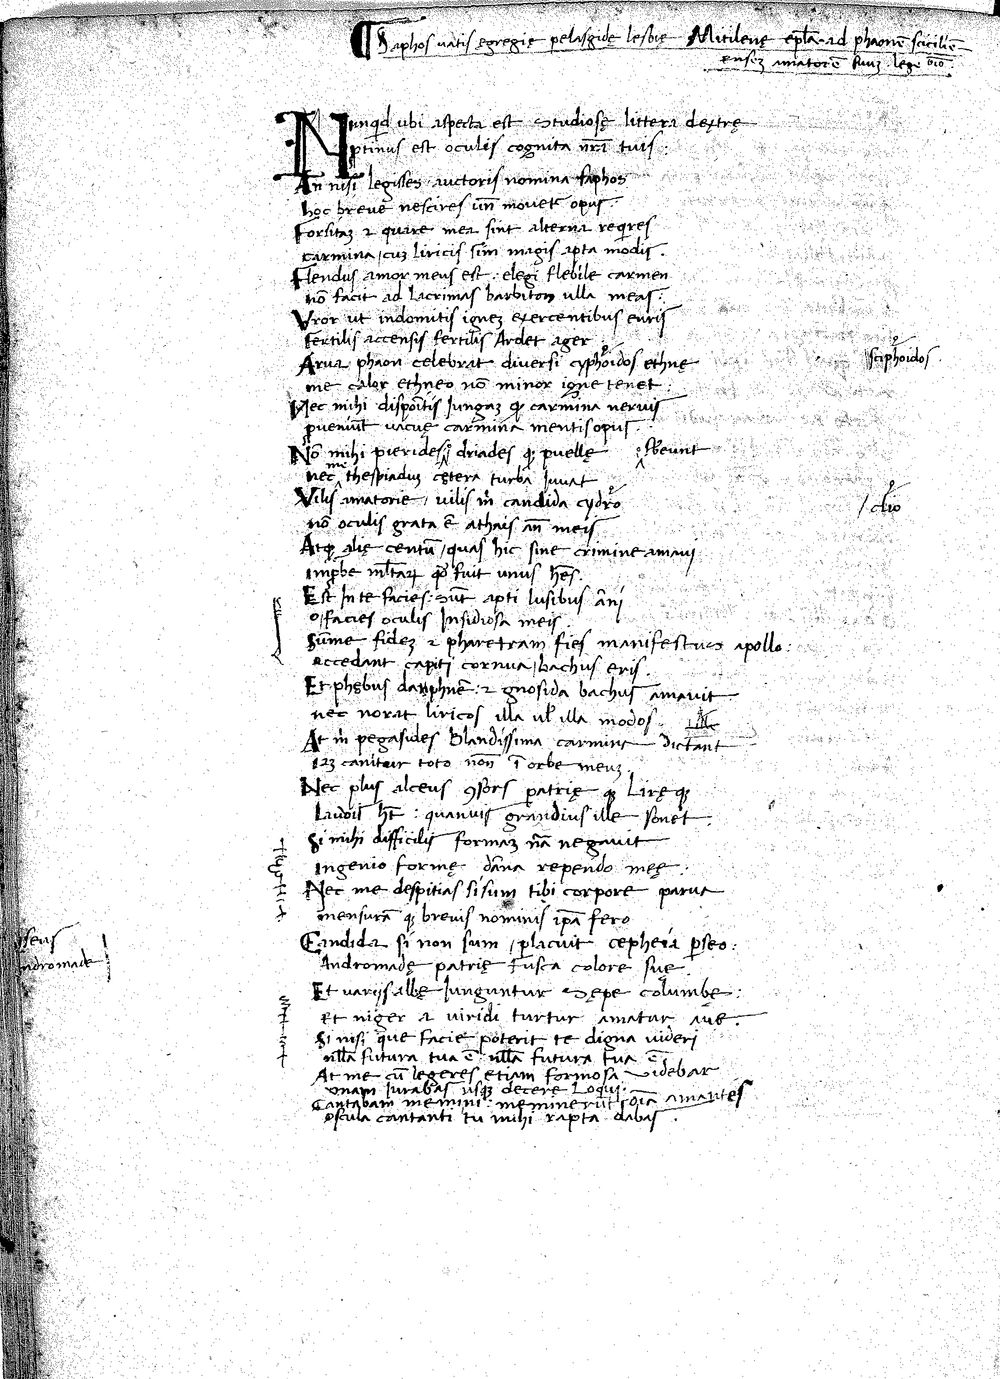 Saphos vatis egregię pelasgidę lesbię Mitilenę epl̄a ad phaonē sciciliē
ensez amatorē suuz lege
Nunqd ubi aspecta est studiosę littera dextrę
ptinus est oculis cognita nr̄a tuis :
An nisi legisses auctoris nomina saphos
hoc breve nescires un̄ movet opus :
Forsitaz 2 quare mea sint alterna reqres
carmina / cuz liricis sim magis apta modis .
Flendus amor meus est : elegi flebile carmen
nō facit ad lacrimas barbiton ulla meas :
Vror ut indomitis ignez exercentibus euris
fertilis accensis fertilis Ardet ager
Arua phaon celebrat diversi cyphoidos ethnę
sciphoidos .
me calor ethneo nō minor igne tenet :
Nec mihi dispoītis Jungaz q̄ carmina nervis
pveniūt vacuę carmina mentis opus :
Nō mihi pierides driades q̄ puellę sbeunt
nec me thespiaduz cętera turba Juvat
Vilis amatorie / vilis m̄ candida cydro
/ clio
nō oculis grata ē athais an̄ meis
Atq̄ alię centū / quas hic sine crimine amavi
impbe ml̄tarz qd̄ fuit unus hēs .
Est In te facies : sūt apti lusibus ān̄i
o / facies oculis Insidiosa meis .
Sume fidez 2 pharetram fies manifestus apollo :
accedant capiti cornua / bachus eris .
Et phębus daphnē : 2 gnosida bachus amavit
nec norat liricos illa vl̄ illa modos .
At m̄ pegasides blandissima carmina dictant
iaz canitur toto nōn ī orbe meuz .
Nec plus alceus 9sors patrię q̄ Liręq̄
Laudis h̄t : quamvis grandius ille sonet .
Si mihi difficilis formaz nā̄ negavit
ingenio formę dāna rependo męę .
Nec me despitias si sum tibi corpore parva
mensurā q̄ brevis nominis ipā fero
Candida si non sum / placuit cepheia pseo :
seus
Andromadę patrię fusca colore suę .
ndromade
Et variis albę Junguntur sępe columbę :
et niger a viridi turtur amatur ave .
Si nisi que facie poterit te digna videri
nl̄la futura tua ē : nl̄la futura tua ē
At me cū legeres etiam formosa videbar
unam Jurabas usq̄ decere Loqui .
Cantabam memini : meminerūt oīa amantes
oscula cantanti tu mihi rapta dabas .